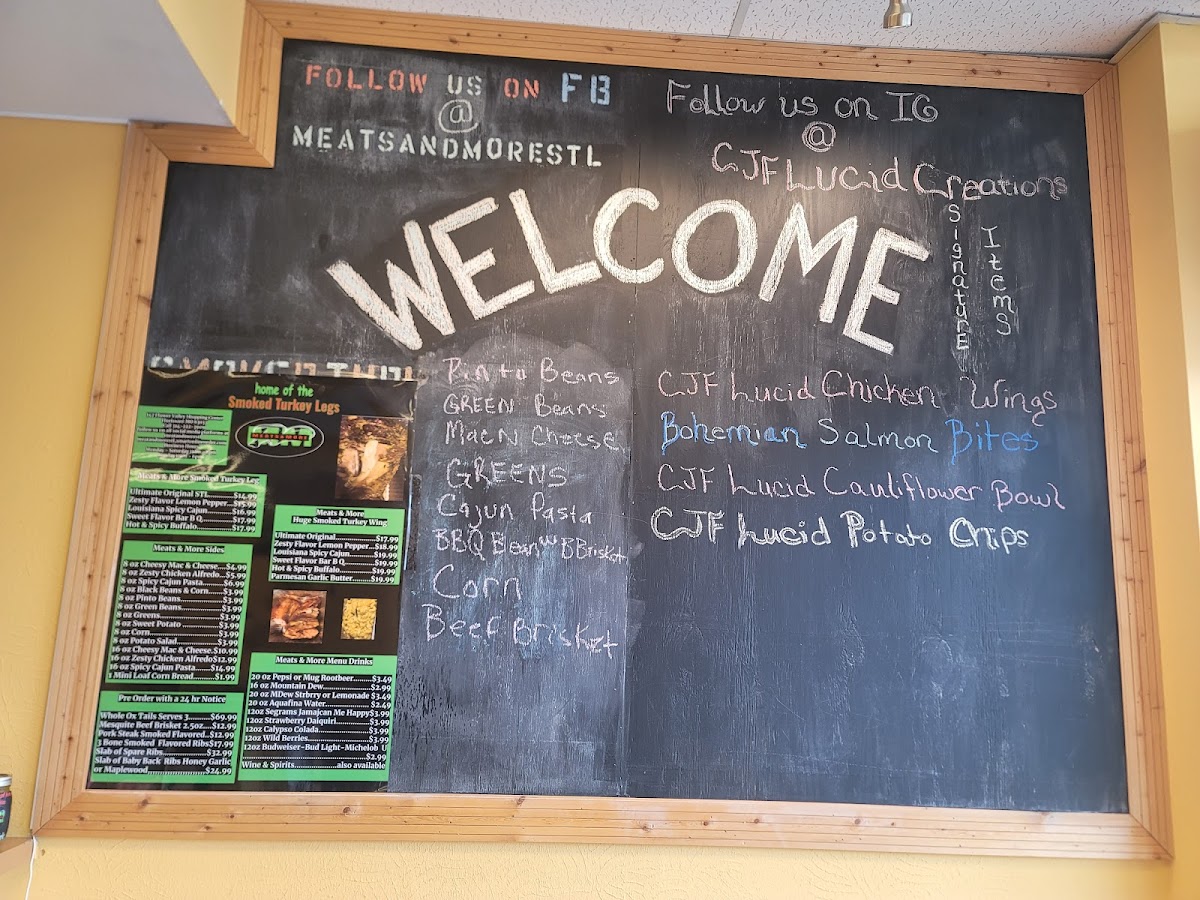 FOLLOW US ON FB
@
MEATSANDMORESTL
Follow us on IG
@
CJF Lucid Creations
Signature
Items
WELCOME
Pinto Beans
GREEN Beans
MacN Cheese
GREENS
Cajun Pasta
BBQ Bean w BBrisket
Corn
Beef Brisket
CJF Lucid Chicken Wings
Bohemian Salmon Bites
CJF Lucid Cauliflower Bowl
CJF Lucid Potato Chips
home of the
Smoked Turkey Legs
MEATS&MORE
Meats & More Smoked Turkey Leg
Ultimate Original STL............$14.99
Zesty Flavor Lemon Pepper...$15.99
Louisiana Spicy Cajun...........$16.99
Sweet Flavor Bar B Q............$17.99
Hot & Spicy Buffalo..............$17.99
Meats & More Sides
8 oz Cheesy Mac & Cheese....$4.99
8 oz Zesty Chicken Alfredo...$5.99
8 oz Spicy Cajun Pasta..........$6.99
8 oz Black Beans & Corn.......$3.99
8 oz Pinto Beans...................$3.99
8 oz Green Beans..................$3.99
8 oz Greens..........................$3.99
8 oz Sweet Potato ................$3.99
8 oz Corn.............................$3.99
8 oz Potato Salad..................$3.99
16 oz Cheesy Mac & Cheese.$10.99
16 oz Zesty Chicken Alfredo$12.99
16 oz Spicy Cajun Pasta.......$14.99
1 Mini Loaf Corn Bread........$1.99
Pre Order with a 24 hr Notice
Whole Ox Tails Serves 3.........$69.99
Mesquite Beef Brisket 2.5oz....$12.99
Pork Steak Smoked Flavored..$12.99
3 Bone Smoked Flavored Ribs$17.99
Slab of Spare Ribs.................$32.99
Slab of Baby Back Ribs Honey Garlic
or Maplewood.......................$24.99
Meats & More
Huge Smoked Turkey Wing
Ultimate Original..............$17.99
Zesty Flavor Lemon Pepper...$18.99
Louisiana Spicy Cajun.........$19.99
Sweet Flavor Bar B Q..........$19.99
Hot & Spicy Buffalo............$19.99
Parmesan Garlic Butter.......$19.99
Meats & More Menu Drinks
20 oz Pepsi or Mug Rootbeer......$3.49
16 oz Mountain Dew.................$2.99
20 oz MDew Strbrry or Lemonade $3.49
20 oz Aquafina Water................ $2.49
12oz Segrams Jamajcan Me Happy$3.99
12oz Strawberry Daiquiri...........$3.99
12oz Calypso Colada..................$3.99
12oz Wild Berries.....................$3.99
12oz Budweiser-Bud Light-Michelob U
.............................................$2.99
Wine & Spirits...............also available